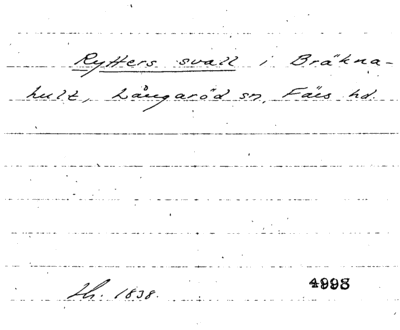 Rytters svall i Bräkna-
hult, Långaröd sn, Färs hd.
Lh. 1838.
4998